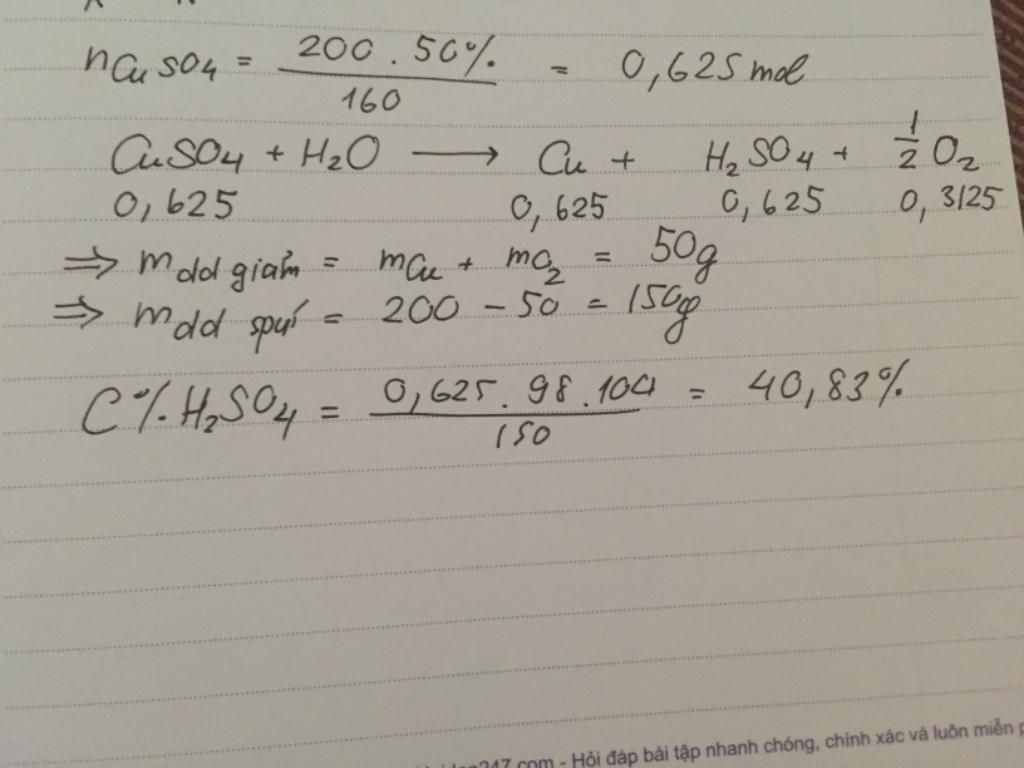 nCuSO4 = 200 . 50% / 160 = 0,625 mol
CuSO4 + H2O → Cu + H2SO4 + 1/2 O2
0,625 0,625 0,625 0,3125
⇒ mdd giảm = mCu + mO2 = 50g
⇒ mdd spứ = 200 - 50 = 150g
C% H2SO4 = 0,625 . 98 . 100 / 150 = 40,83%
247.com - Hỏi đáp bài tập nhanh chóng, chính xác và luôn miễn